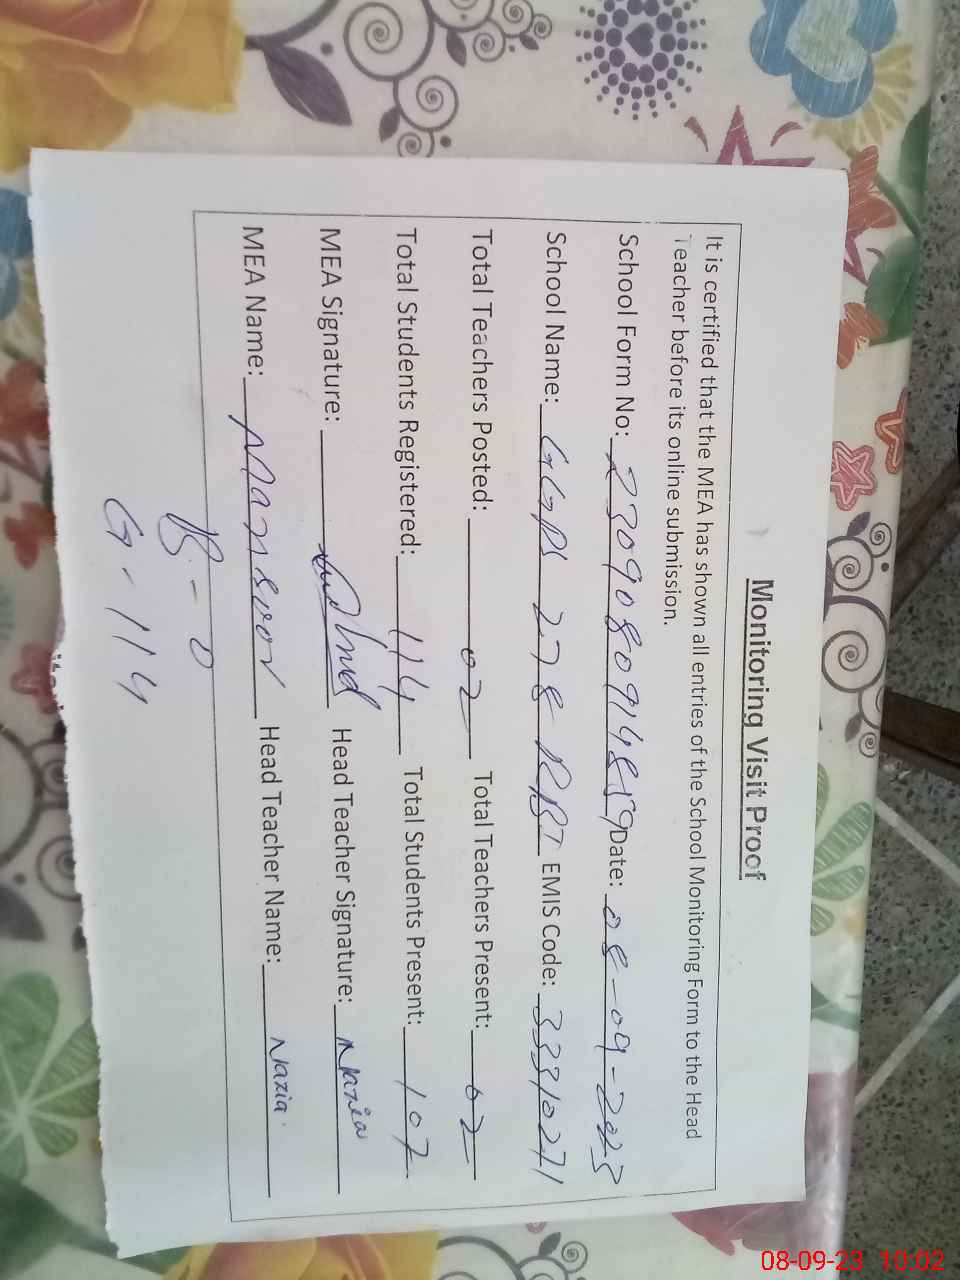 Monitoring Visit Proof
It is certified that the MEA has shown all entries of the School Monitoring Form to the Head
Teacher before its online submission.
School Form No: 23090809148159 Date: 08-09-2023
School Name: GGPS 278 RB EMIS Code: 33310271
Total Teachers Posted: 02 Total Teachers Present: 02
Total Students Registered: 114 Total Students Present: 107
MEA Signature: Head Teacher Signature: Nazia
MEA Name: Mansoor Head Teacher Name: Nazia
B - 0
G - 114
08-09-23 10:02